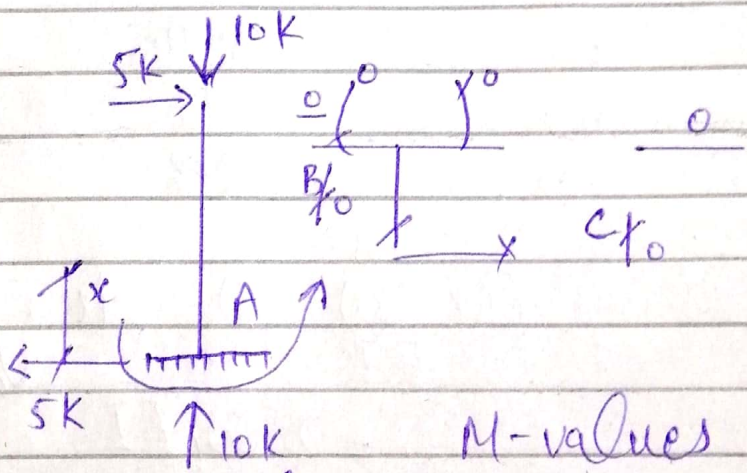 10K
5K
0 0 0 0
B 0
C 0
x A
5K
10K M-values